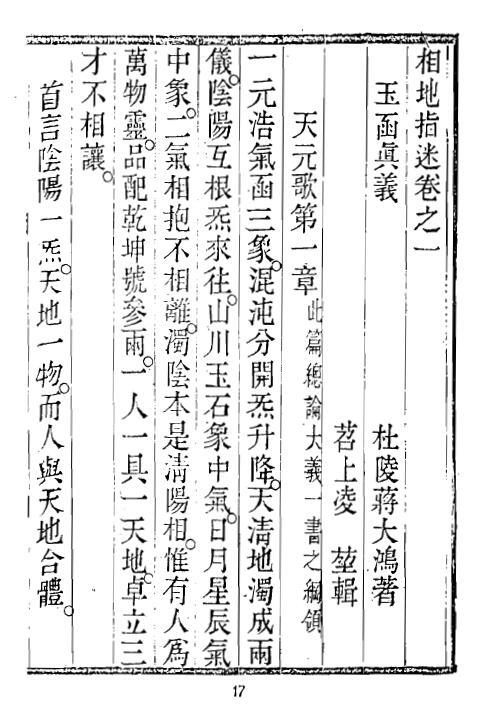 相地指迷卷之一
玉函眞義
杜陵蔣大鴻著
苕上凌 堃輯
天元歌第一章 此篇總論大義一書之綱領
一元浩氣函三象。混沌分開炁升降。天淸地濁成兩
儀。陰陽互根炁來往。山川玉石象中氣。日月星辰氣
中象。二氣相抱不相離。濁陰本是淸陽相。惟有人爲
萬物靈。品配乾坤號參兩。一人一具一天地。卓立三
才不相讓。
首言陰陽一炁。天地一物。而人與天地合體。
17